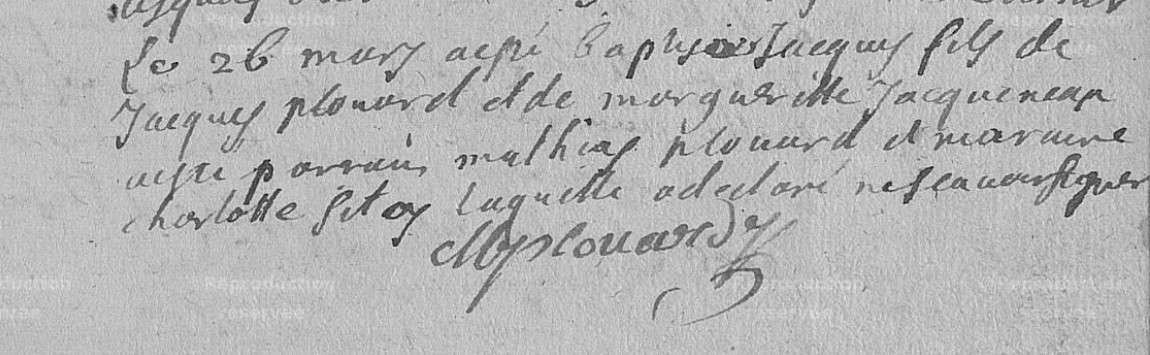 Le 26 mars aesté baptisé Jacques fils de
Jacques plouard et de margueritte Jacqueneau
aesté parrain mathias plouard et maraine
charlotte laquelle adeclaré nescavoir signer
Mplouard